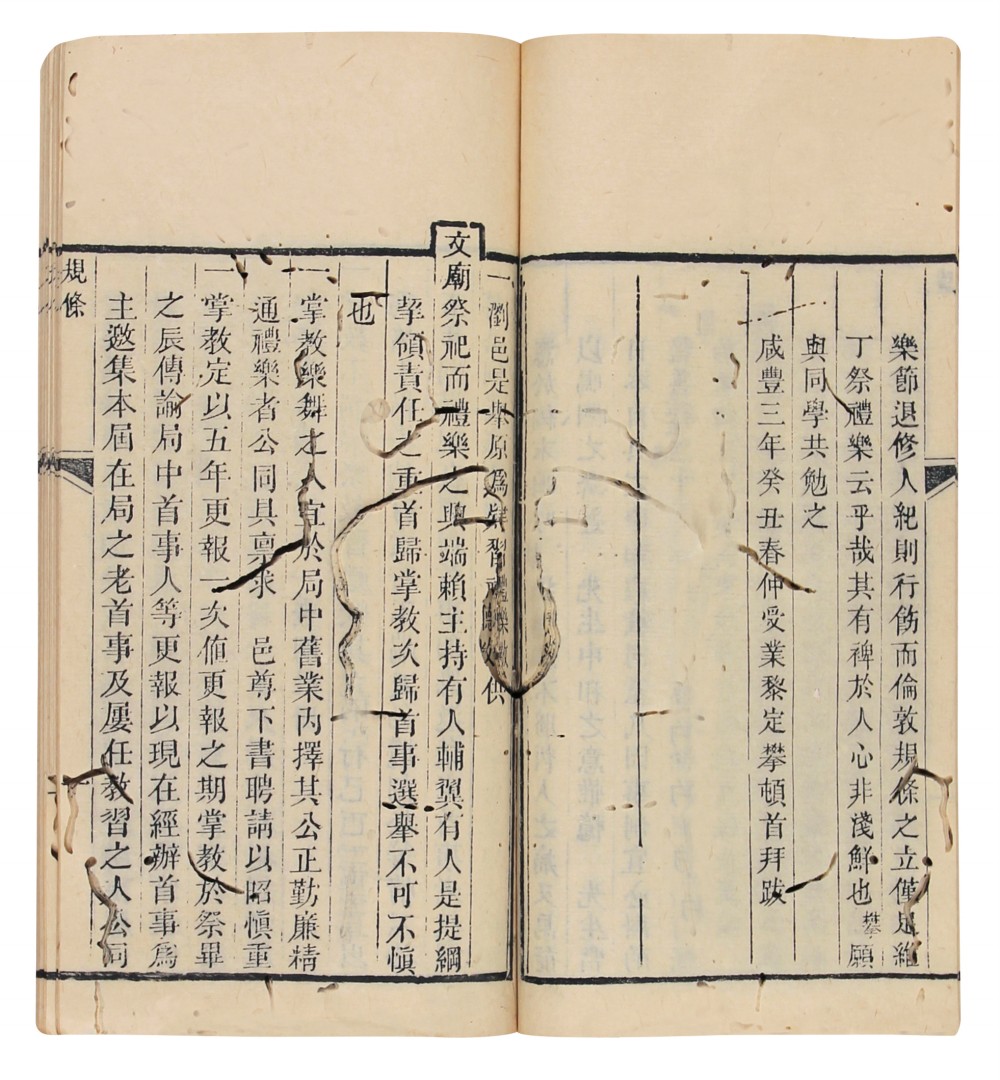 樂節退修人紀則行飭而倫敦規條之立僅足維
丁祭禮樂云乎哉其有裨於人心非淺鮮也攀願
與同學共勉之
咸豐三年癸丑春仲受業黎定攀頓首拜跋
一瀏邑是舉原為肄習禮樂供
文廟祭祀而禮樂之興端賴主持有人輔翼有人是提綱
挈領責任之重首歸掌教次歸首事選舉不可不慎
也
一掌教樂舞之人宜於局中舊業內擇其公正勤廉精
通禮樂者公同具稟求 邑尊下書聘請以昭慎重
一掌教定以五年更報一次值更報之期掌教於祭畢
之辰傳諭局中首事人等更報以現在經辦首事為
主邀集本屆在局之老首事及屢任教習之人公同
規條